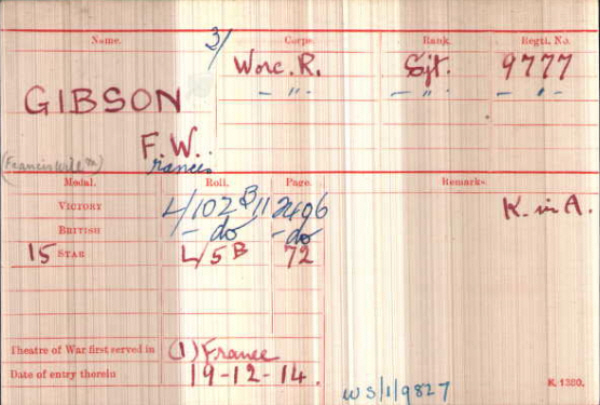 Name. Corps. Rank. Regtl. No.
3/ Worc. R. Sjt. 9777
GIBSON - " - - " - - " -
F. W.
(Francis Will m) Francis
Medal. Roll. Page. Remarks.
VICTORY L/102 B11 2406 K. in A.
BRITISH - do - do
15 STAR L/5 B 72
Theatre of War first served in (1) France
Date of entry therein 19-12-14.
WS/1/9827 K. 1380.